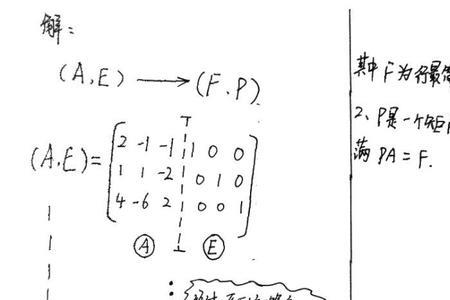 解:
(A,E) → (F,P)
(A,E)=
2 -1 -1 1 0 0
1 1 -2 0 1 0
4 -6 2 0 0 1
A E
其中F为行最简
2、P是一个矩
满PA=F.